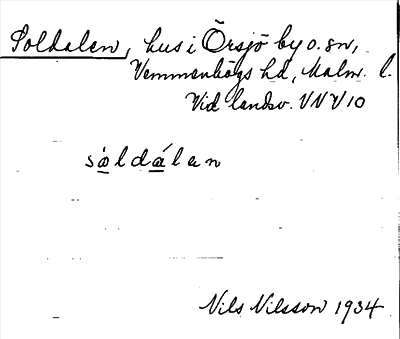 Soldalen, hus i Örsjö by o. sn,
Vemmenhögs hd, Malm. l.
Vid landsv. VNV 10
sòldálan
Nils Nilsson 1934